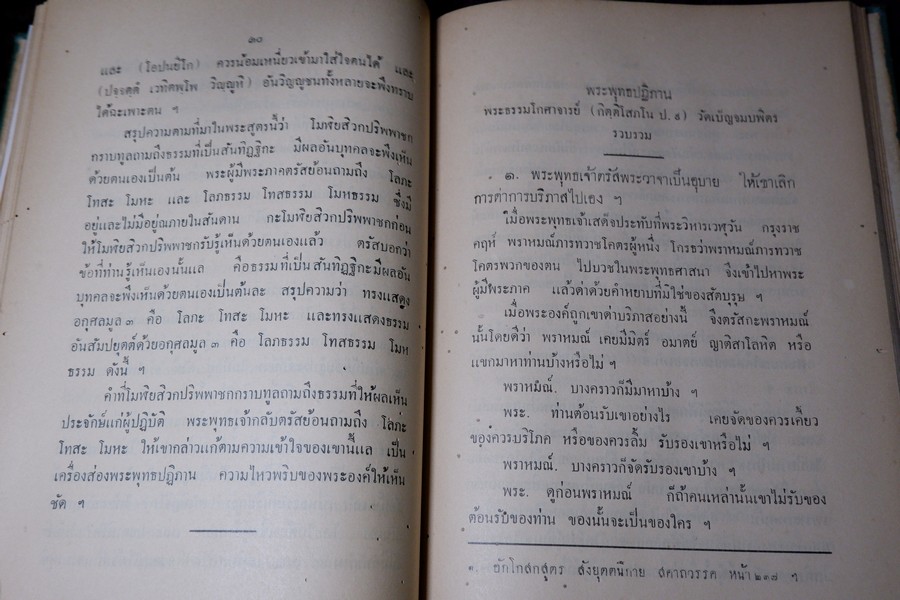 ๓๐
และ (โอปนยิโก) ควรน้อมเหนี่ยวเข้ามาใส่ใจตนได้ และ
(ปจฺจตฺตํ เวทิตพฺโพ วิญฺญูหิ) อันวิญญูชนทั้งหลายจะพึงทราบ
ได้ฉะเพาะตน ฯ
สรุปความตามที่มาในพระสูตรนี้ว่า โมฬิยสิวกปริพพาชก
กราบทูลถามถึงธรรมที่เป็นสันทิฏฐิกะ มีผลอันบุคคลจะพึงเห็น
ด้วยตนเองเป็นต้น พระผู้มีพระภาคตรัสย้อนถามถึง โลภะ
โทสะ โมหะ และ โลภธรรม โทสธรรม โมหธรรม ซึ่งมี
อยู่และไม่มีอยู่ณภายในสันดาน กะโมฬิยสิวกปริพพาชกก่อน
ให้โมฬิยสิวกปริพพาชกรับรู้เห็นด้วยตนเองแล้ว ตรัสบอกว่า
ข้อที่ท่านรู้เห็นเองนั้นแล คือธรรมที่เป็นสันทิฏฐิกะมีผลอัน
บุคคลจะพึงเห็นด้วยตนเองเป็นต้นละ สรุปความว่า ทรงแสดง
อกุศลมูล ๓ คือ โลภะ โทสะ โมหะ และทรงแสดงธรรม
อันสัมปยุตต์ด้วยอกุศลมูล ๓ คือ โลภธรรม โทสธรรม โมห
ธรรม ดังนี้ ฯ
คำที่โมฬิยสิวกปริพพาชกกราบทูลถามถึงธรรมที่ให้ผลเห็น
ประจักษ์แก่ผู้ปฏิบัติ พระพุทธเจ้ากลับตรัสย้อนถามถึง โลภะ
โทสะ โมหะ ให้เขากล่าวแก้ตามความเข้าใจของเขานี้แล เป็น
เครื่องส่องพระพุทธปฏิภาน ความไหวพริบของพระองค์ให้เห็น
ชัด ฯ
พระพุทธปฏิภาน
พระธรรมโกศาจารย์ (กิตฺติโสภโน ป. ๙) วัดเบ็ญจมบพิตร
รวบรวม
๑. พระพุทธเจ้าตรัสพระวาจาเป็นอุบาย ให้เขาเลิก
การด่าการบริภาสไปเอง ฯ
เมื่อพระพุทธเจ้าเสด็จประทับที่พระวิหารเวฬุวัน กรุงราช
คฤห์ พราหมณ์ภารทวาชโคตรผู้หนึ่ง โกรธว่าพราหมณ์ภารทวาช
โคตรพวกของตน ไปบวชในพระพุทธศาสนา จึงเข้าไปหาพระ
ผู้มีพระภาค แล้วด่าด้วยคำหยาบที่มิใช่ของสัตบุรุษ ฯ
เมื่อพระองค์ถูกเขาด่าบริภาสอย่างนี้ จึงตรัสกะพราหมณ์
นั้นโดยดีว่า พราหมณ์ เคยมีมิตร์ อมาตย์ ญาติสาโลหิต หรือ
แขกมาหาท่านบ้างหรือไม่ ฯ
พราหมณ์. บางคราวก็มีมาหาบ้าง ฯ
พระ. ท่านต้อนรับเขาอย่างไร เคยจัดของควรเคี้ยว
ของควรบริโภค หรือของควรลิ้ม รับรองเขาหรือไม่ ฯ
พราหมณ์. บางคราวก็จัดรับรองเขาบ้าง ฯ
พระ. ดูก่อนพราหมณ์ ก็ถ้าคนเหล่านั้นเขาไม่รับของ
ต้อนรับของท่าน ของนั้นจะเป็นของใคร ฯ
๑. อักโกสกสูตร สังยุตตนิกาย สคาถวรรค หน้า ๒๓๗ ฯ